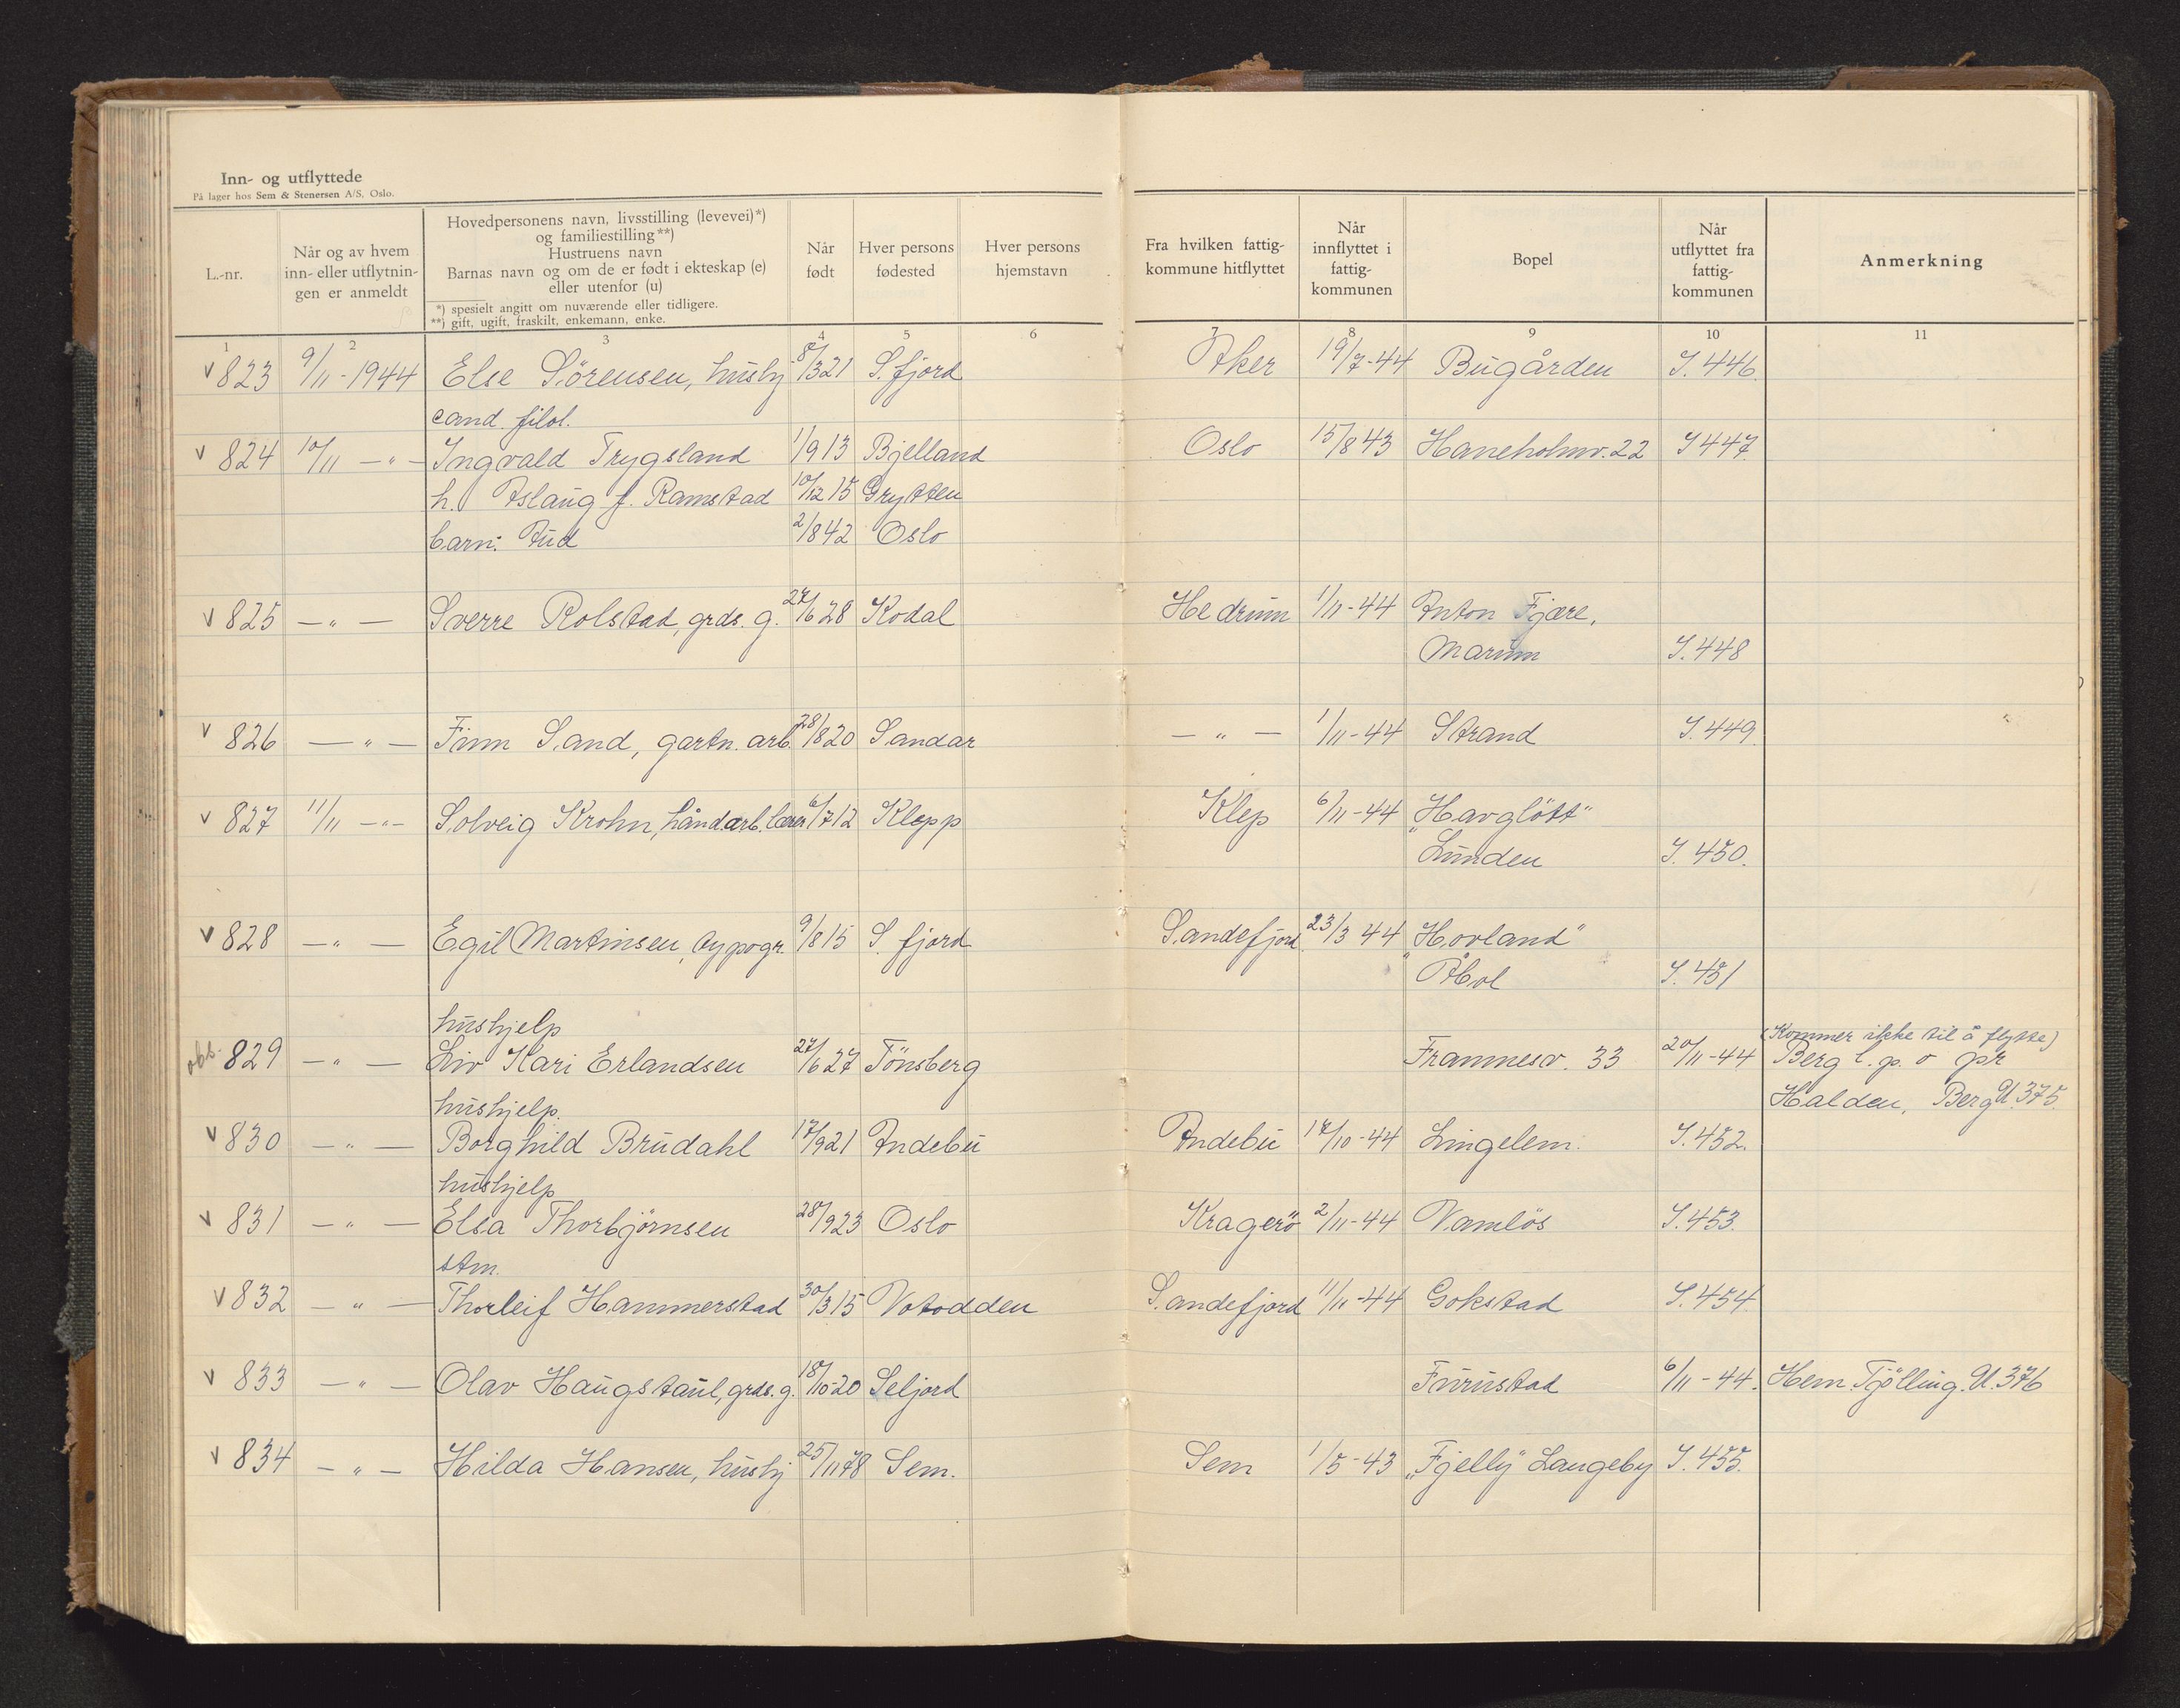 Inn- og utflyttede
På lager hos Sem & Stenersen A/S, Oslo.
L.-nr.
Når og av hvem
inn- eller utflytnin-
gen er anmeldt
Hovedpersonens navn, livsstilling (levevei)*)
og familiestilling**)
Hustruens navn
Barnas navn og om de er født i ekteskap (e)
eller utenfor (u)
*) spesielt angitt om nuværende eller tidligere.
**) gift, ugift, fraskilt, enkemann, enke.
Når
født
Hver persons
fødested
Hver persons
hjemstavn
Fra hvilken fattig-
kommune hitflyttet
Når
innflyttet i
fattig-
kommunen
Bopel
Når
utflyttet fra
fattig-
kommunen
Anmerkning
1 2 3 4 5 6 7 8 9 10 11
v 823 9/11-1944 Else Sörensen, hushj 8/3 21 S.fjord Aker 19/7-44 Bugården I. 446.
cand. filol.
v 824 10/11 -"- Ingvald Trygsland 1/9 13 Bjelland Oslo 15/8 43 Haneholmv. 22 I 447.
h. Aslaug f. Ramstad 10/12 15 Grytten
barn: Aud 2/8 42 Oslo
v 825 -"- Sverre Rolstad, grds. g. 27/6 28 Kodal Hedrum 1/11-44 Anton Fjære,
Marum I. 448
v 826 -"- Finn Sand, gartn. arb. 28/8 20 Sandar -"- 1/11-44 Strand I. 449.
v 827 11/11 -"- Solveig Krohn, håndarb. lærer 6/7 12 Klepp Klep 6/11-44 "Havglött"
Lunden I. 450.
v 828 -"- Egil Martinsen, typogr. 9/8 15 S.fjord Sandefjord 23/3 44 "Hovland"
Åbol I. 451
hushjelp (Kommer ikke til å flytte)
obs. 829 -"- Liv Kari Erlandsen 27/6 27 Tönsberg Framnesv. 33 20/11-44 Berg l. p. o pr
Halden, Berg U. 375.
hushjelp.
v 830 -"- Borghild Brudahl 17/9 21 Andebu Andebu 17/10-44 Lingelem. I. 452.
hushjelp
v 831 -"- Elsa Thorbjörnsen 28/9 23 Oslo Kragerö 2/11-44 Namlös I. 453.
stm.
v 832 -"- Thorleif Hammerstad 30/3 15 Notodden Sandefjord 11/11-44 Gokstad I. 454.
v 833 -"- Olav Haugstaul, grds. g. 18/10-20 Seljord Furustad 6/11-44. Hem. Tjölling. U. 376
v 834 -"- Hilda Hansen, hushj 25/11 78 Sem. Sem 1/5-43 "Fjelly" Langeby I. 455.